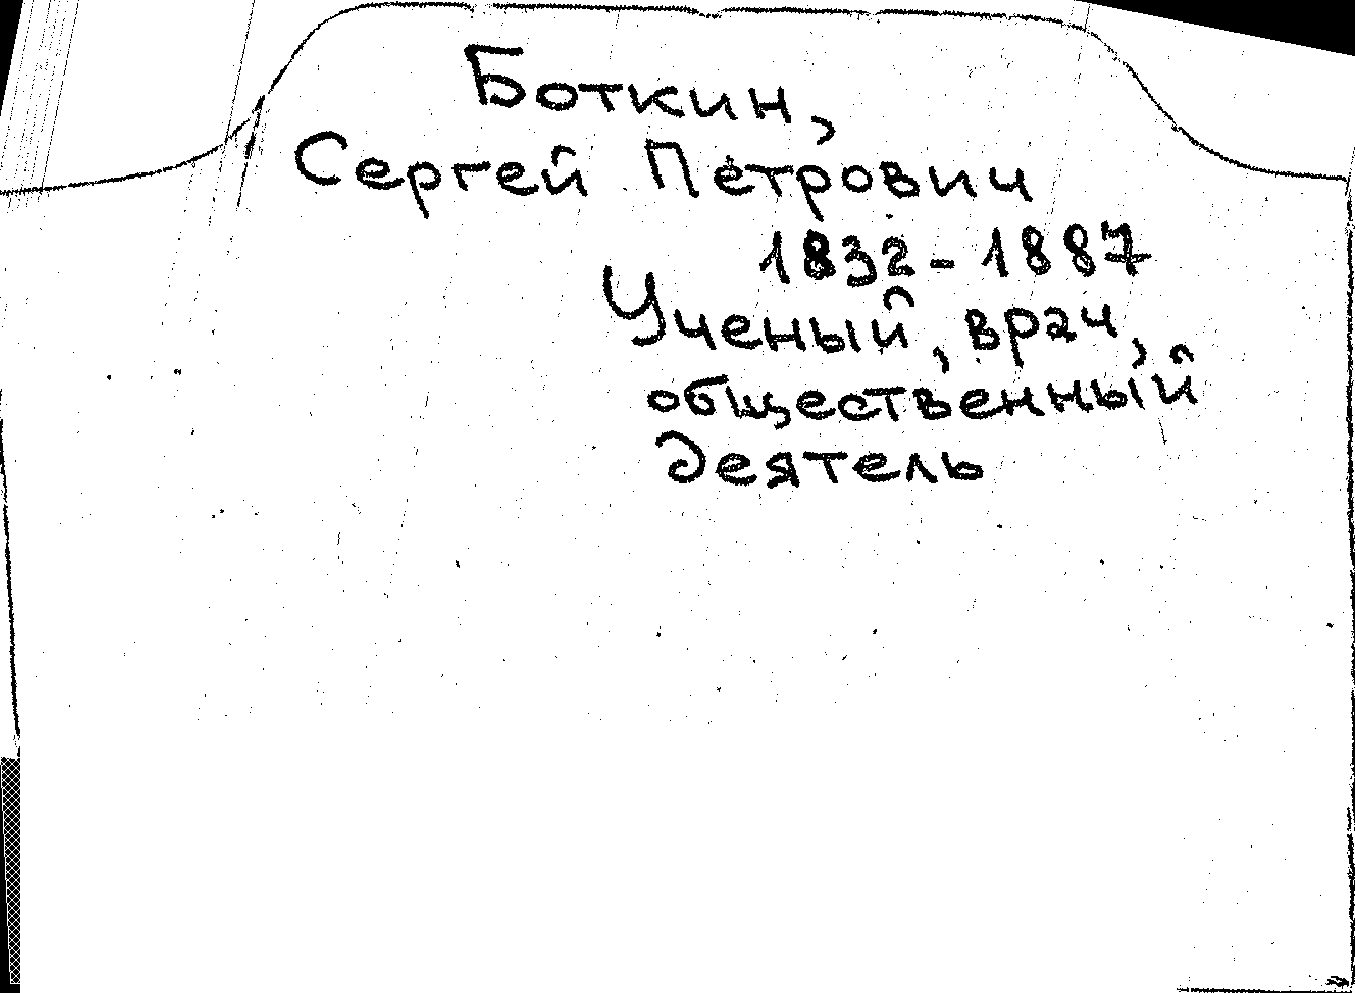 Боткин,
Сергей Петрович
1832-1887
Ученый, врач,
общественный
деятель